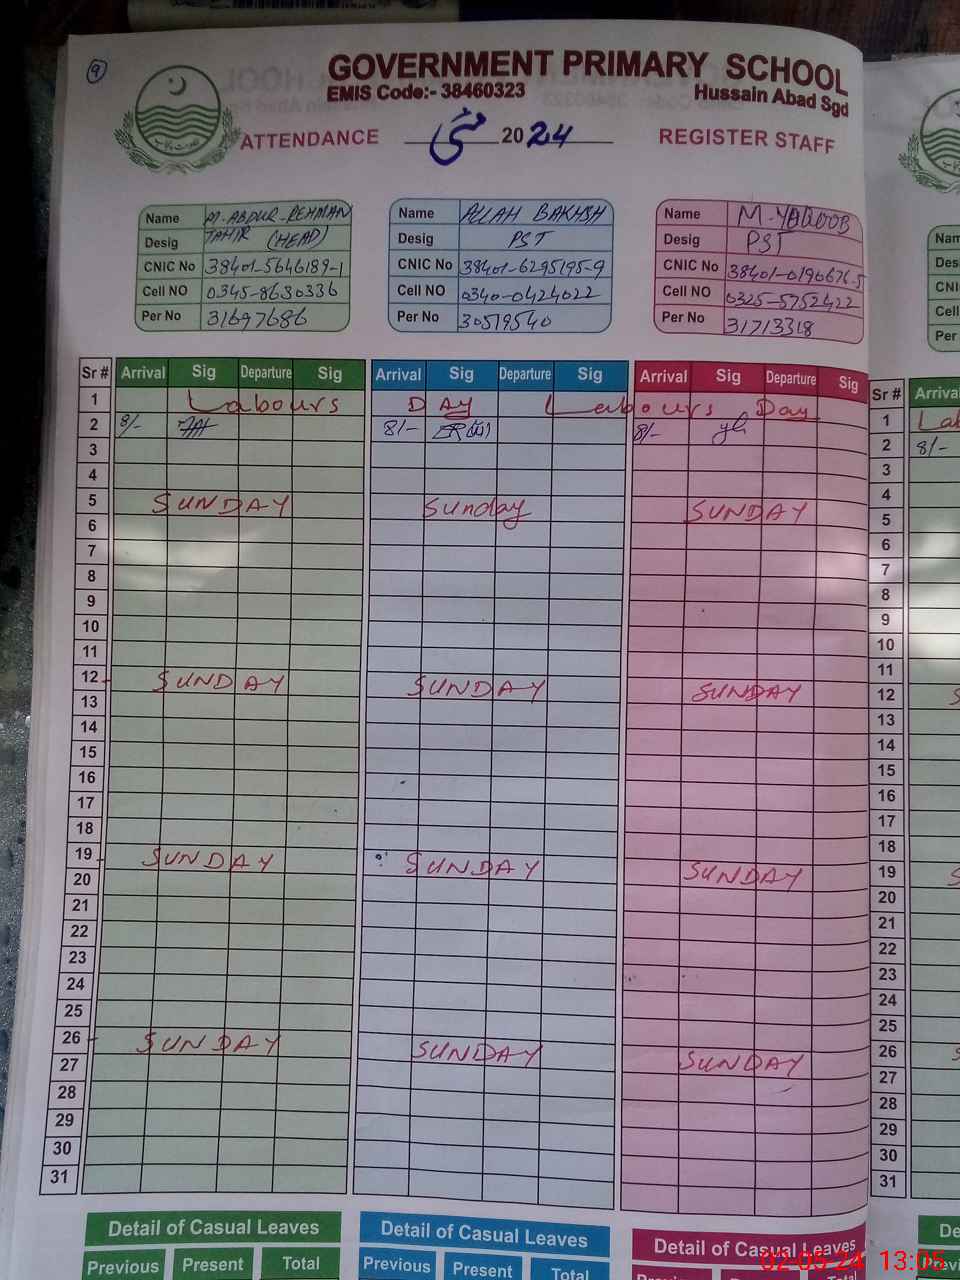 9
GOVERNMENT PRIMARY SCHOOL
EMIS Code:- 38460323
Hussain Abad Sgd
ATTENDANCE مئی 2024 REGISTER STAFF
Name M. ABDUR-REHMAN
Desig TAHIR (HEAD)
CNIC No 38401-5646189-1
Cell NO 0345-8630336
Per No 31697686
Name ALLAH BAKHSH
Desig PST
CNIC No 38401-6295195-9
Cell NO 0340-0424022
Per No 30519540
Name M-YAQOOB
Desig PST
CNIC No 38401-0190676-5
Cell NO 0325-5752422
Per No 31713318
Sr # Arrival Sig Departure Sig Arrival Sig Departure Sig Arrival Sig Departure Sig
1 Labours DAY Labours Day
2 8/- 8/- 8/-
3
4
5 SUNDAY Sunday SUNDAY
6
7
8
9
10
11
12 SUNDAY SUNDAY SUNDAY
13
14
15
16
17
18
19 SUNDAY SUNDAY SUNDAY
20
21
22
23
24
25
26 SUNDAY SUNDAY SUNDAY
27
28
29
30
31
Detail of Casual Leaves Detail of Casual Leaves Detail of Casual Leaves
Previous Present Total Previous Present Total
Desig
Cell
Per
Sr # Arrival
1
2 8/-
3
4
5
6
7
8
9
10
11
12
13
14
15
16
17
18
19
20
21
22
23
24
25
26
27
28
29
30
31
02-05-24 13:05